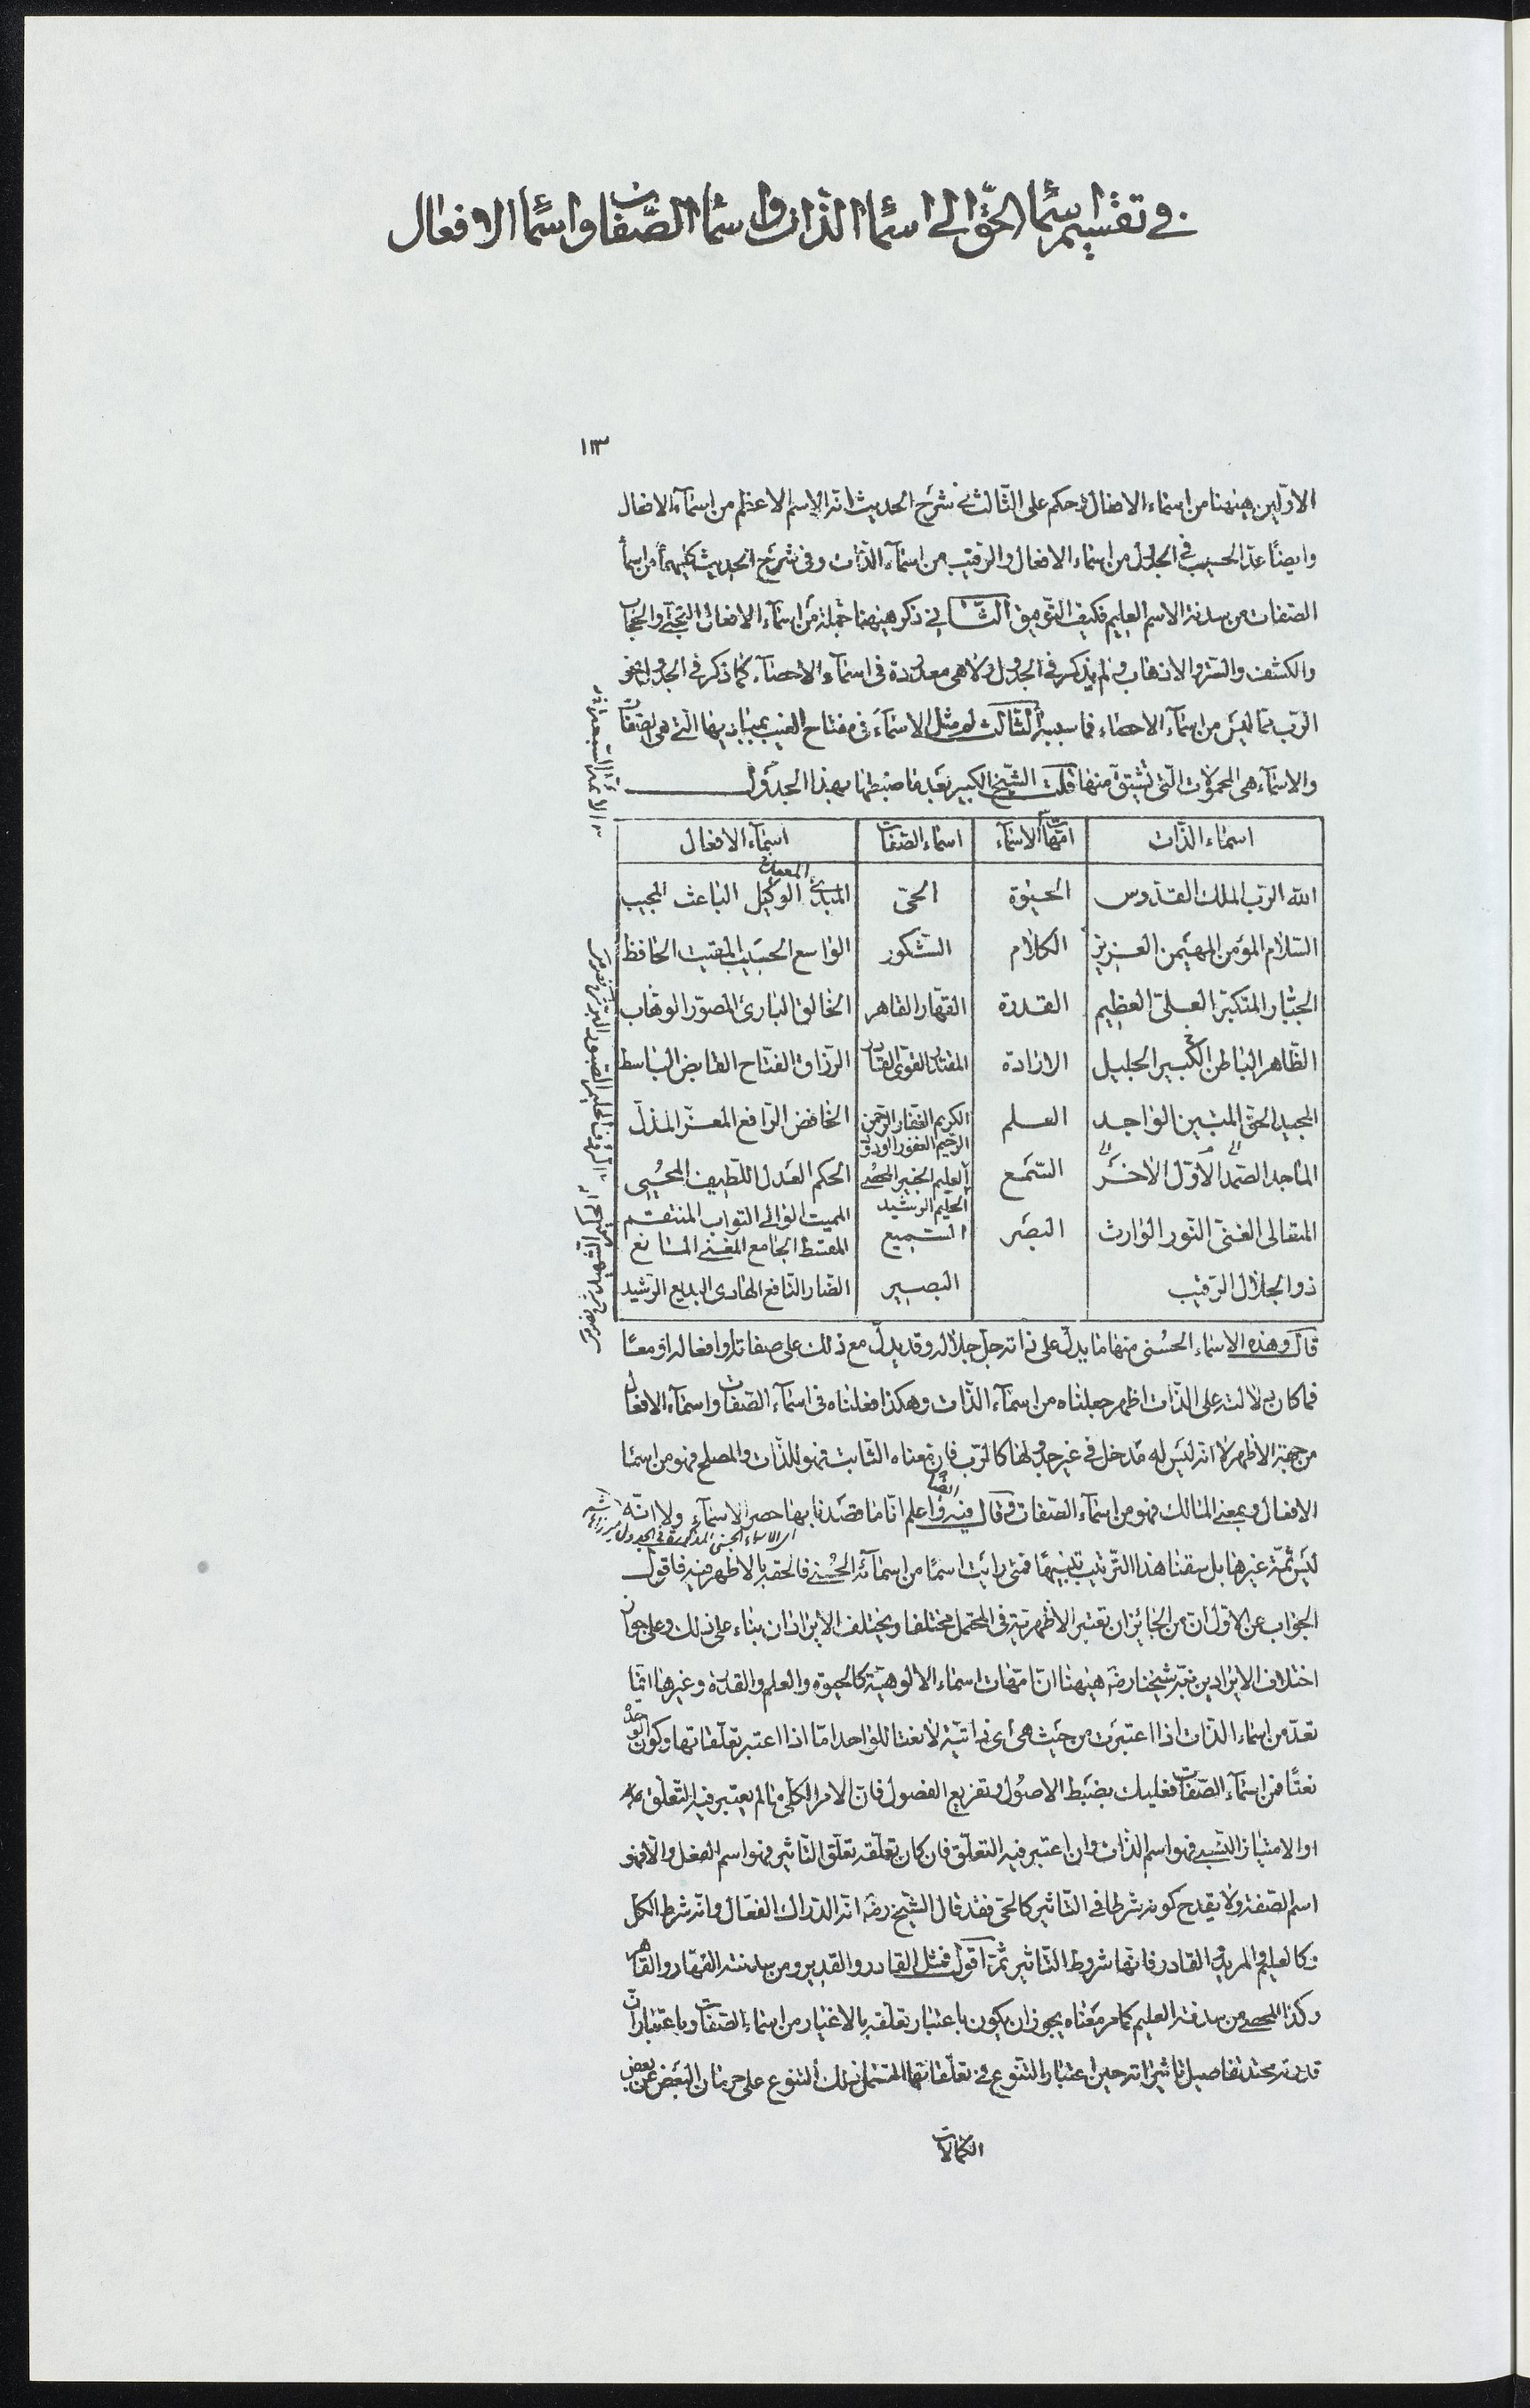 في تقسيم اسماء الحق الى اسماء الذات واسماء الصفات واسماء الافعال
١١٣
الاولين هيهنا من اسماء الافعال وحكم على الثالث في شرح الحديث انه الاسم الاعظم من اسماء الافعال
وايضا عد الحسيب في الجدول من اسماء الافعال والرقيب من اسماء الذات وفي شرح الحديث كليهما من اسماء
الصفات من سدنة الاسم العليم فكيف التوفيق الثاني ذكر هيهنا جملة من اسماء الافعال التجلي والحجاب
والكشف والستر والاذهاب ولم يذكر في الجدول ولا هي معدودة في اسماء الاحصاء كما ذكر في الجدول نحو
الرب مما ليس من اسماء الاحصاء فما سببه الثالث لم مثل الاسماء في مفتاح الغيب بمباديها التي هي الصفات
والاسماء هي المحمولات التي تشتق منها قلت الشيخ الكبير بعد ما ضبطها بهذا الجدول
اسماء الذات امهات الاسماء اسماء الصفات اسماء الافعال
الله الرب الملك القدوس الحيوة الحي المبدئ الوكيل الباعث المجيب
السلام المؤمن المهيمن العزيز الكلام الشكور الواسع الحسيب المقيت الحافظ
الجبار المتكبر العلي العظيم القدرة القهار القاهر الخالق البارئ المصور الوهاب
الظاهر الباطن الكبير الجليل الارادة المقتدر القوي القادر الرزاق الفتاح القابض الباسط
المجيد الحق المبين الواجد العلم الكريم الغفار الرحمن الرحيم الغفور الودود الخافض الرافع المعز المذل
الماجد الصمد الاول الاخر السمع العليم الخبير المحصي الحليم الرشيد الحكم العدل اللطيف المحيي
المتعالي الغني النور الوارث البصر السميع المميت الوالي التواب المنتقم المقسط الجامع المغني المانع
ذو الجلال الرقيب البصير الضار النافع الهادي البديع الرشيد
قال وهذه الاسماء الحسنى منها ما يدل على ذاته جل جلاله وقد يدل مع ذلك على صفاته او افعاله او معا
فما كان دلالته على الذات اظهر جعلناه من اسماء الذات وهكذا فعلناه في اسماء الصفات واسماء الافعال
من جهة الاظهر لا انه ليس له مدخل في غير جدولها كالرب فان معناه الثابت فهو للذات والمصلح فهو من اسماء
الافعال وبمعنى المالك فهو من اسماء الصفات وقال فيه ايضا واعلم انا ما قصدنا بها حصر الاسماء ولا انه
اي الاسماء الحسنى المذكورة في الجدول
ليس ثمة غيرها بل سقنا هذا الترتيب تنبيها فمتى رايت اسما من اسمائه الحسنى فالحقه بالاظهر فيه فاقول
الجواب عن الاول ان من الجائز ان تعتبر الاظهرية في المحتمل مختلفا ويختلف الايرادان بناء على ذلك وعلى جواز
اختلاف الايرادين نبه شيخنا رضه هيهنا ان امهات اسماء الالوهية كالحيوة والعلم والقدرة وغيرها انما
تعد من اسماء الذات اذا اعتبرت من حيث هي اي ذاتية لا نعتا للواحد اما اذا اعتبر تعلقاتها وكون الوحدة
نعتا فمن اسماء الصفات فعليك بضبط الاصول وتفريع الفصول فان الامر الكلي ما لم يعتبر فيه التعلق
او الامتياز النسبي فهو اسم الذات وان اعتبر فيه التعلق فان كان تعلقه تعلق التاثير فهو اسم الفعل والا فهو
اسم الصفة ولا يقدح كونه شرطا في التاثير كالحي فقد قال الشيخ رضه انه الدراك الفعال وانه شرط الكل
وكالعليم والمريد والقادر فانها شروط التاثير ثمة اقول فمثل القادر والقدير ومن سدنته القهار والقاهر
وكذا المحصي من سدنة العليم كما مر معناه يجوز ان يكون باعتبار تعلقه بالاغيار من اسماء الصفات وباعتبار ان
قدرته محتد تفاصيل تاثيراته حين اعتبار التنوع في تعلقاتها المشتمل ذلك التنوع على حرمان البعض عن بعض
الكمالات